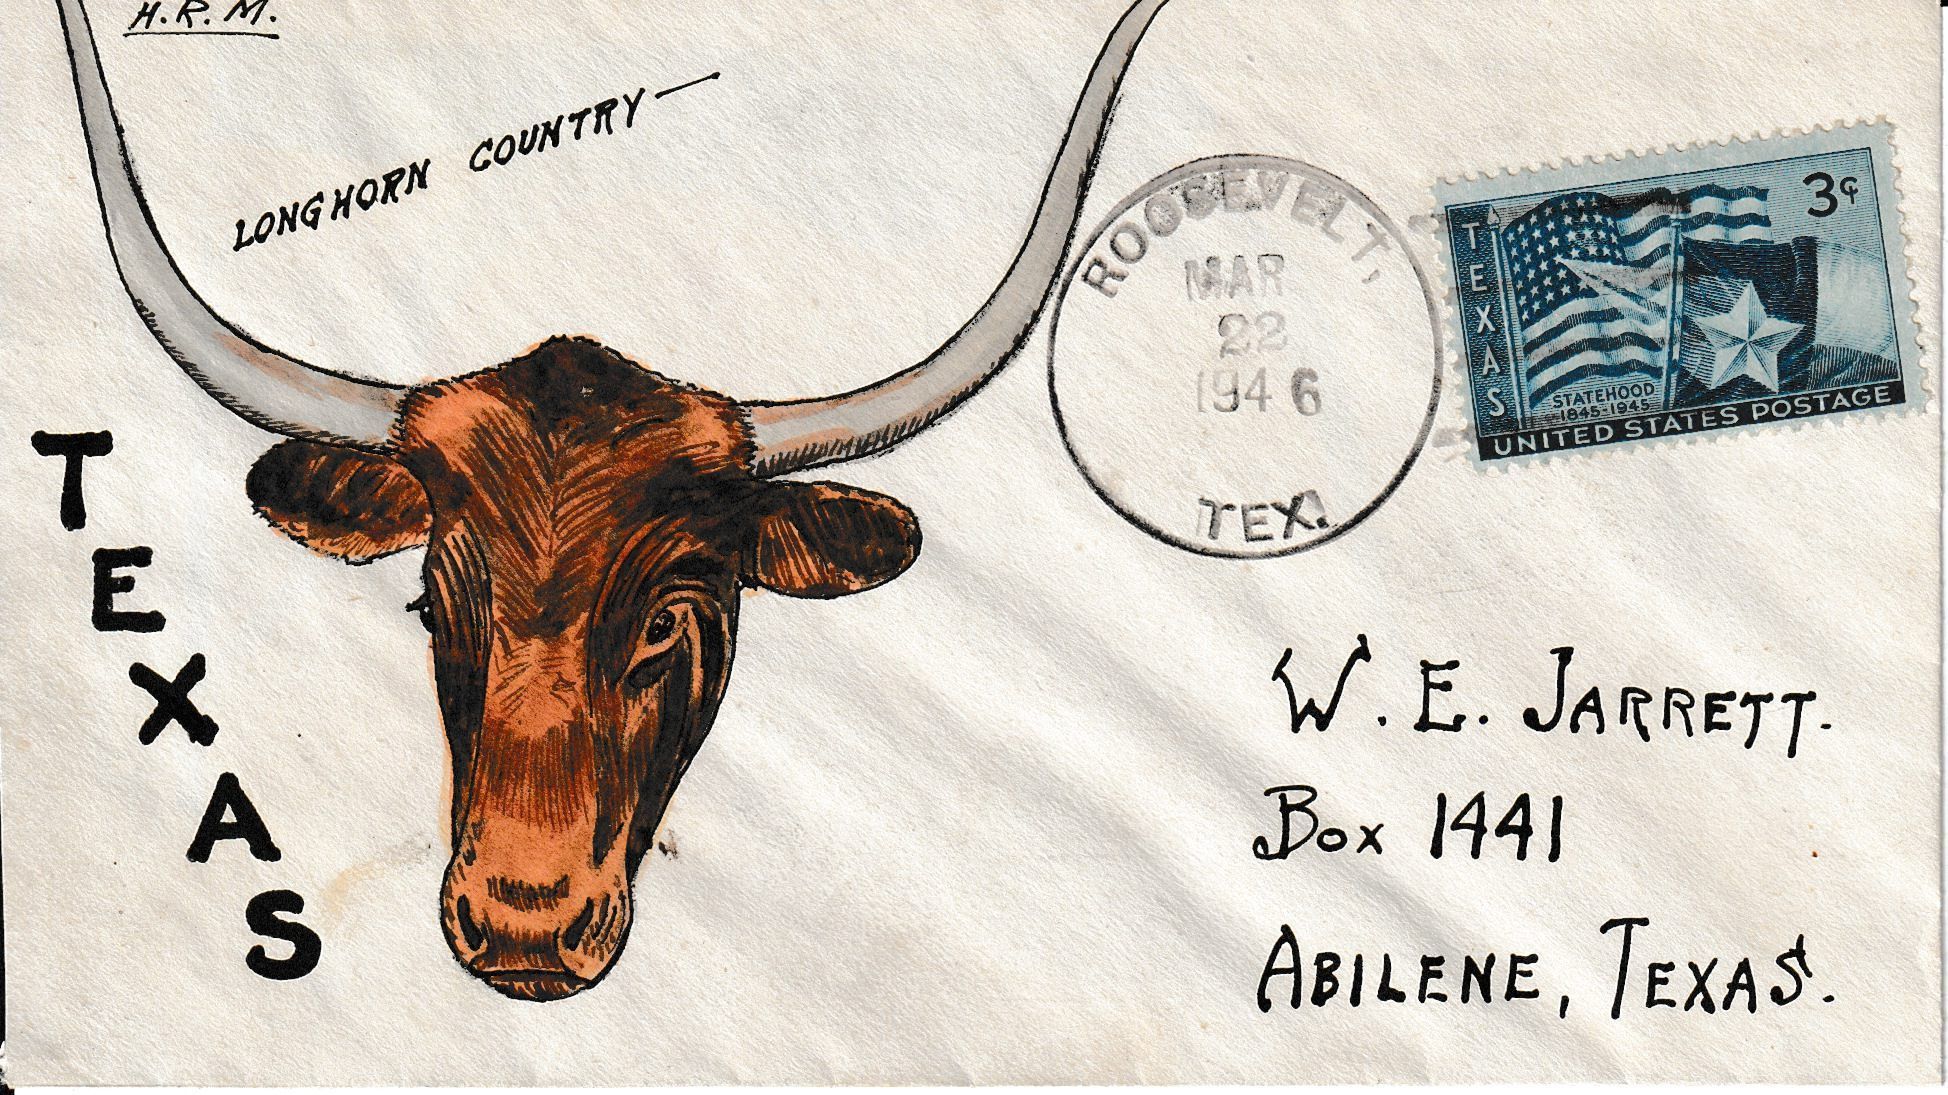 H.R.M.
LONGHORN COUNTRY—
TEXAS
ROOSEVELT,
MAR
22
1946
TEX.
3¢
TEXAS
STATEHOOD
1845-1945
UNITED STATES POSTAGE
W. E. JARRETT.
BOX 1441
ABILENE, TEXAS.